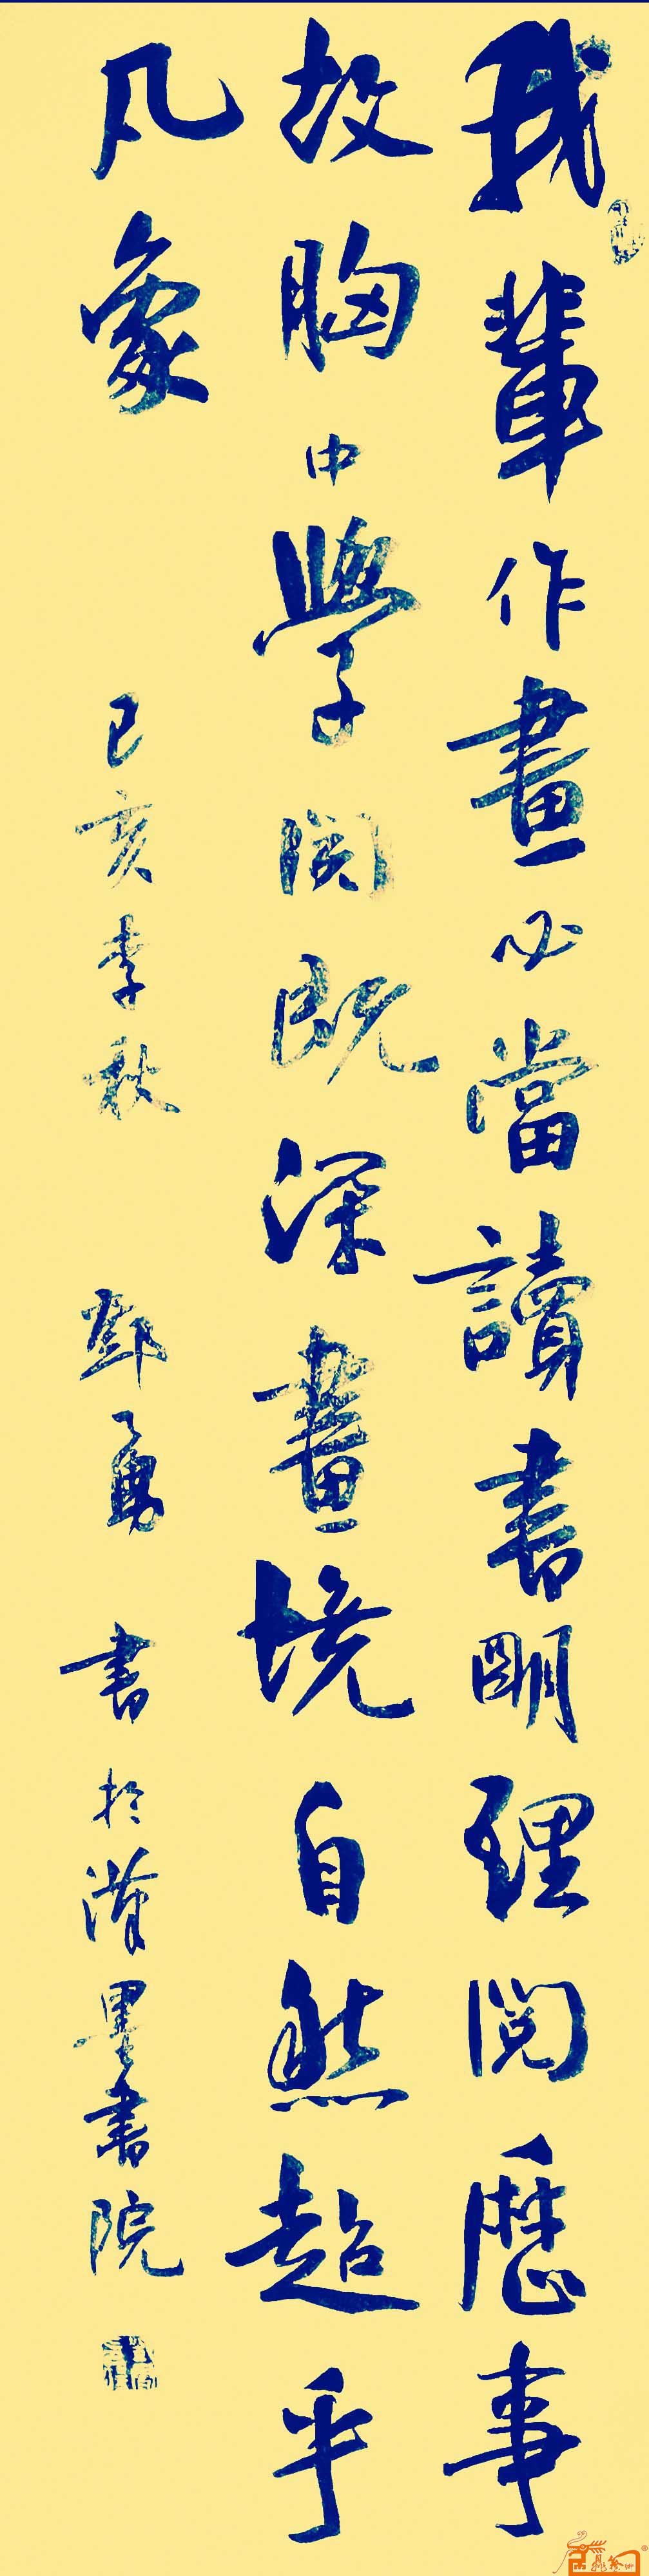 我輩作畫必當讀書明理閱歷事
故胸中學問既深畫境自然超乎
凡象
己亥季秋 鄧勇 書於漢墨書院